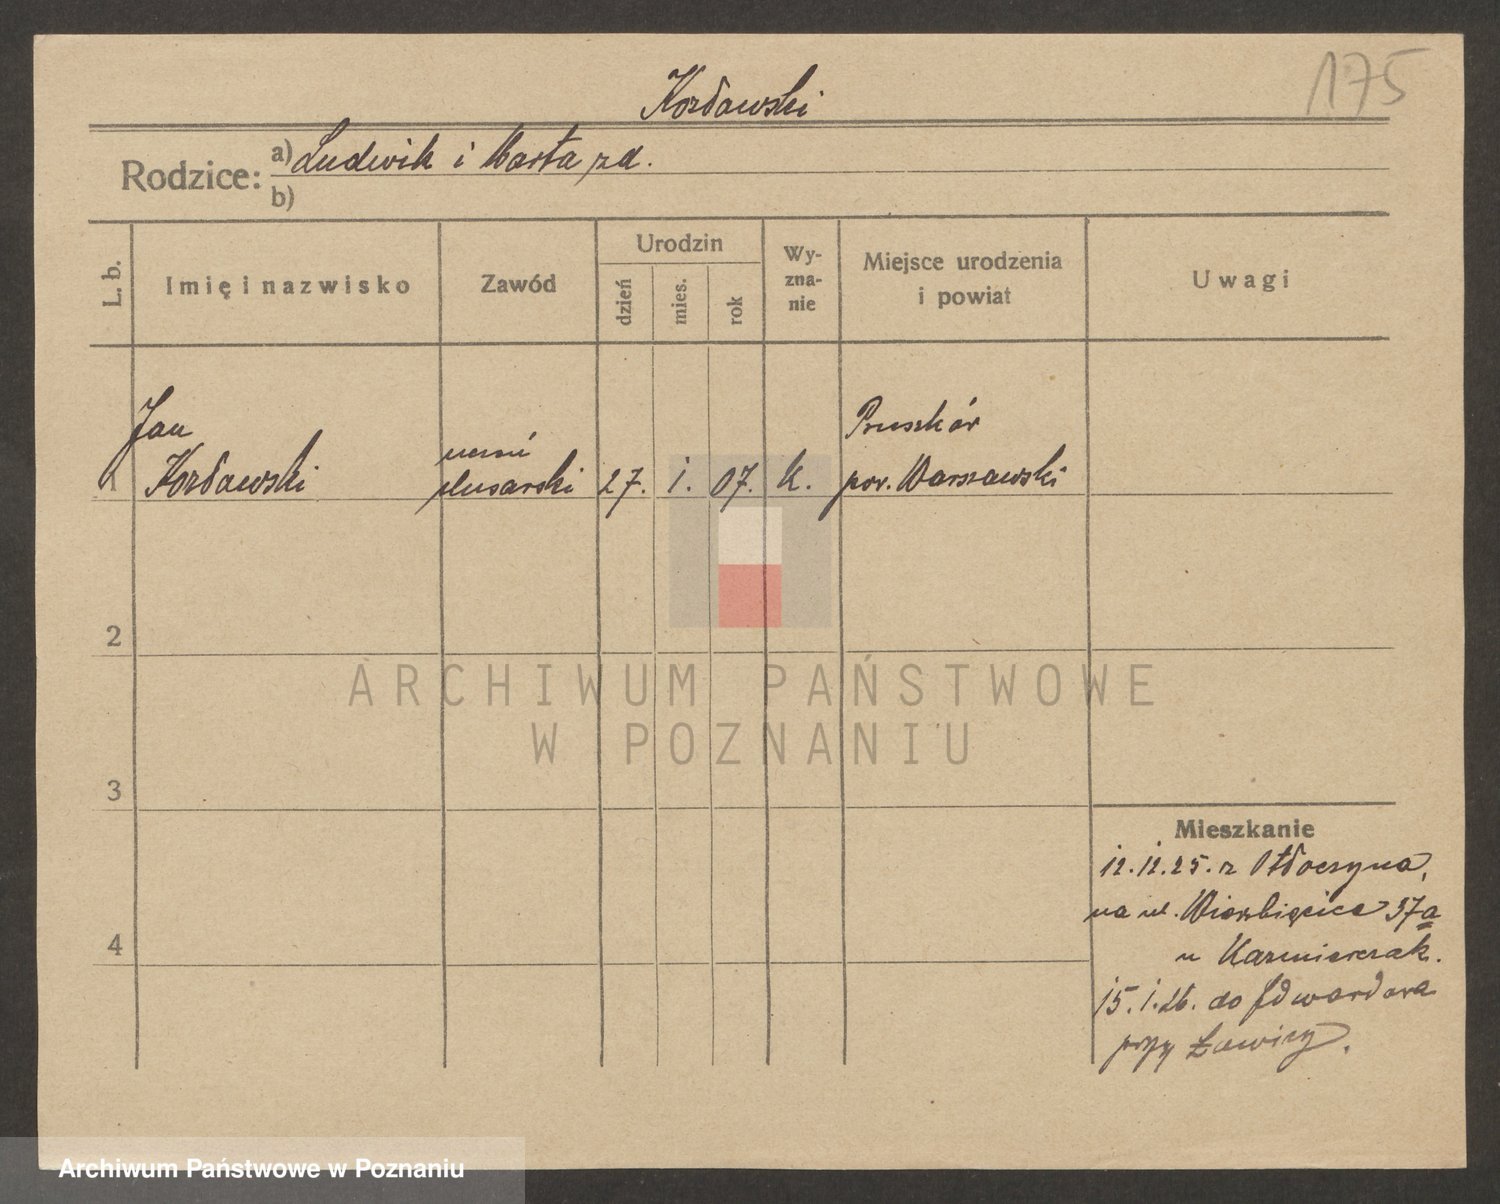 175
Kozdawski
Rodzice:
a) Ludwik i Marta zd.
b)
L. b.
Imię i nazwisko
Zawód
Urodzin
dzień
mies.
rok
Wy-
zna-
nie
Miejsce urodzenia
i powiat
Uwagi
Jan
1 Kozdawski
uczeń
ślusarski
27. 1. 07. K.
Pruszków
pow. Warszawski
2
3
4
Mieszkanie
12.12.25. z Otłoczyna,
na ul. Wierzbięcice 37a
u Kazmierczak.
15.1.26. do Edwardowa
przy Ławicy.
ARCHIWUM PAŃSTWOWE
W POZNANIU
Archiwum Państwowe w Poznaniu